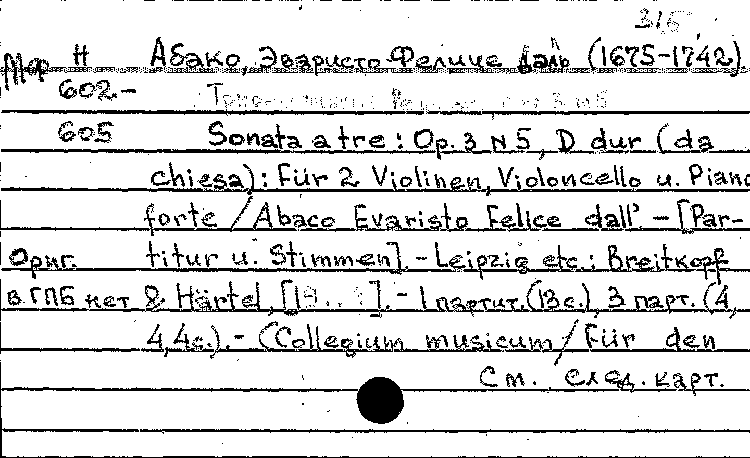 316
Мор Н Абако, Эваристо Феличе даль (1675-1742)
602.-
605 Sonata a tre : Op. 3 N 5, D dur (da
chiesa) : Für 2 Violinen, Violoncello u. Piano
forte / Abaco Evaristo Felice dall'. - [Par-
Ориг. titur u. Stimmen]. - Leipzig etc. : Breitkopf
в ГПБ нет & Härtel, [19...]. - 1 партит. (13 с.), 3 парт. (4,
4, 4 с.). - (Collegium musicum / Für den
См. след. карт.